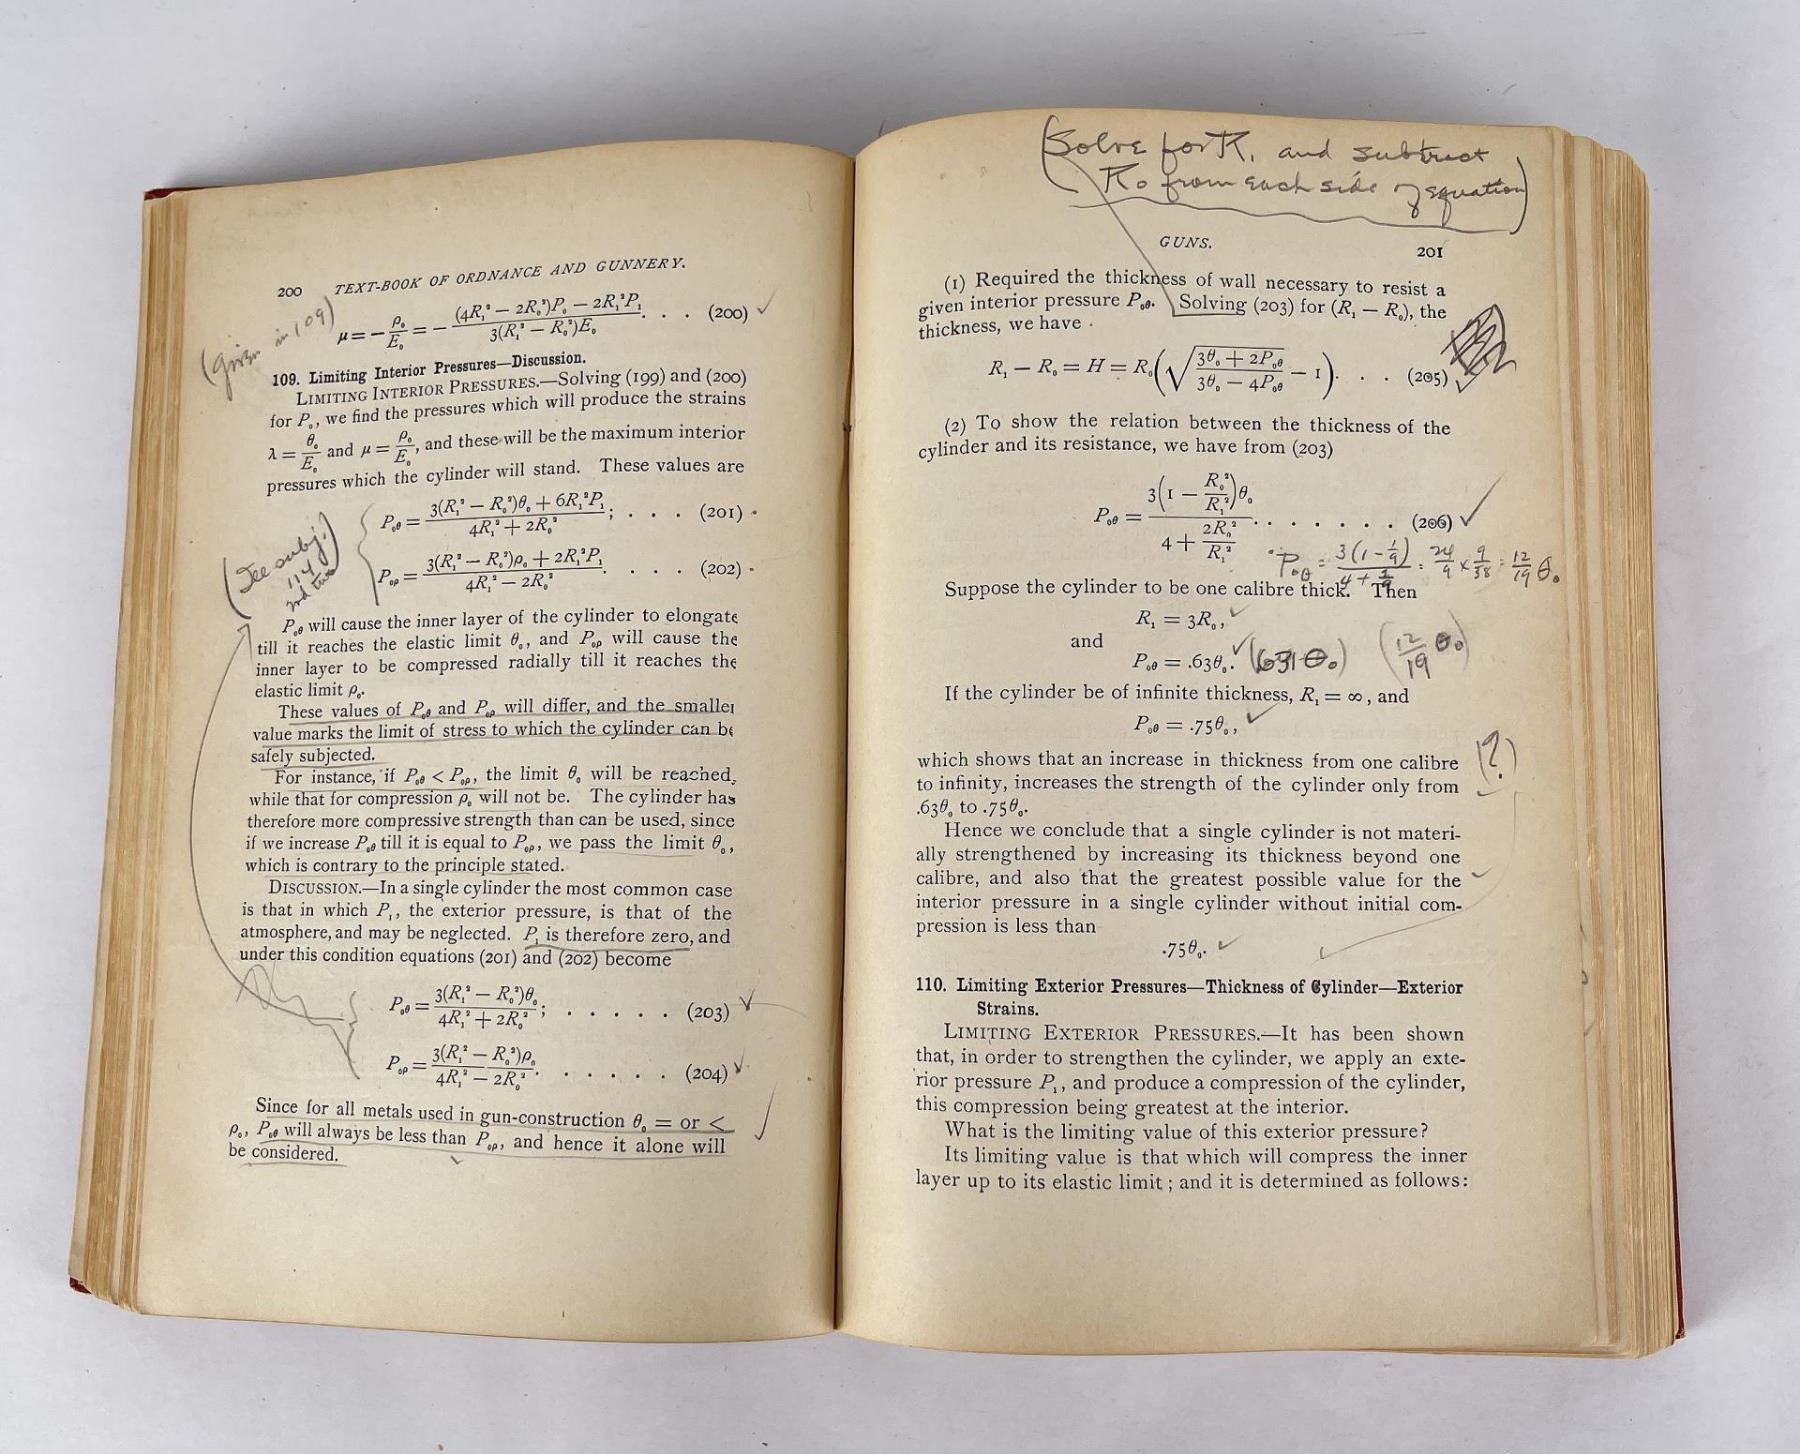 200 TEXT-BOOK OF ORDNANCE AND GUNNERY.
(given in 109)
μ = − ρ₀/E₀ = − ((4R₁² − 2R₀²)P₀ − 2R₁²P₁)/(3(R₁² − R₀²)E₀) . . . (200) ✓
109. Limiting Interior Pressures—Discussion.
LIMITING INTERIOR PRESSURES.—Solving (199) and (200)
for P₀, we find the pressures which will produce the strains
λ = θ₀/E₀ and μ = ρ₀/E₀, and these will be the maximum interior
pressures which the cylinder will stand. These values are
P₀θ = (3(R₁² − R₀²)θ₀ + 6R₁²P₁)/(4R₁² + 2R₀²); . . . (201)
(See subj. 114
P₀ρ = (3(R₁² − R₀²)ρ₀ + 2R₁²P₁)/(4R₁² − 2R₀²). . . . (202)
P₀θ will cause the inner layer of the cylinder to elongate
till it reaches the elastic limit θ₀, and P₀ρ will cause the
inner layer to be compressed radially till it reaches the
elastic limit ρ₀.
These values of P₀θ and P₀ρ will differ, and the smaller
value marks the limit of stress to which the cylinder can be
safely subjected.
For instance, if P₀θ < P₀ρ, the limit θ₀ will be reached,
while that for compression ρ₀ will not be. The cylinder has
therefore more compressive strength than can be used, since
if we increase P₀θ till it is equal to P₀ρ, we pass the limit θ₀,
which is contrary to the principle stated.
DISCUSSION.—In a single cylinder the most common case
is that in which P₁, the exterior pressure, is that of the
atmosphere, and may be neglected. P₁ is therefore zero, and
under this condition equations (201) and (202) become
P₀θ = (3(R₁² − R₀²)θ₀)/(4R₁² + 2R₀²); . . . . . (203) ✓
P₀ρ = (3(R₁² − R₀²)ρ₀)/(4R₁² − 2R₀²). . . . . . (204) ✓
Since for all metals used in gun-construction θ₀ = or <
ρ₀, P₀θ will always be less than P₀ρ, and hence it alone will
be considered.
(Solve for R₁ and subtract
R₀ from each side of equation)
GUNS. 201
(1) Required the thickness of wall necessary to resist a
given interior pressure P₀θ. Solving (203) for (R₁ − R₀), the
thickness, we have
R₁ − R₀ = H = R₀(√((3θ₀ + 2P₀θ)/(3θ₀ − 4P₀θ)) − 1). . . . (205) ✓
(2) To show the relation between the thickness of the
cylinder and its resistance, we have from (203)
P₀θ = (3(1 − R₀²/R₁²)θ₀)/(4 + 2R₀²/R₁²). . . . . . . (206) ✓
P₀θ = 3(1 − 1/9)/(4 + 2/9) = 24/9 × 9/38 = 12/19 θ₀
Suppose the cylinder to be one calibre thick. Then
R₁ = 3R₀, ✓
and
P₀θ = .63θ₀. ✓ (631 θ₀) (12/19 θ₀)
If the cylinder be of infinite thickness, R₁ = ∞, and
P₀θ = .75θ₀, ✓
which shows that an increase in thickness from one calibre (?)
to infinity, increases the strength of the cylinder only from
.63θ₀ to .75θ₀.
Hence we conclude that a single cylinder is not materi-
ally strengthened by increasing its thickness beyond one
calibre, and also that the greatest possible value for the
interior pressure in a single cylinder without initial com-
pression is less than
.75θ₀. ✓
110. Limiting Exterior Pressures—Thickness of Cylinder—Exterior
Strains.
LIMITING EXTERIOR PRESSURES.—It has been shown
that, in order to strengthen the cylinder, we apply an exte-
rior pressure P₁, and produce a compression of the cylinder,
this compression being greatest at the interior.
What is the limiting value of this exterior pressure?
Its limiting value is that which will compress the inner
layer up to its elastic limit; and it is determined as follows: